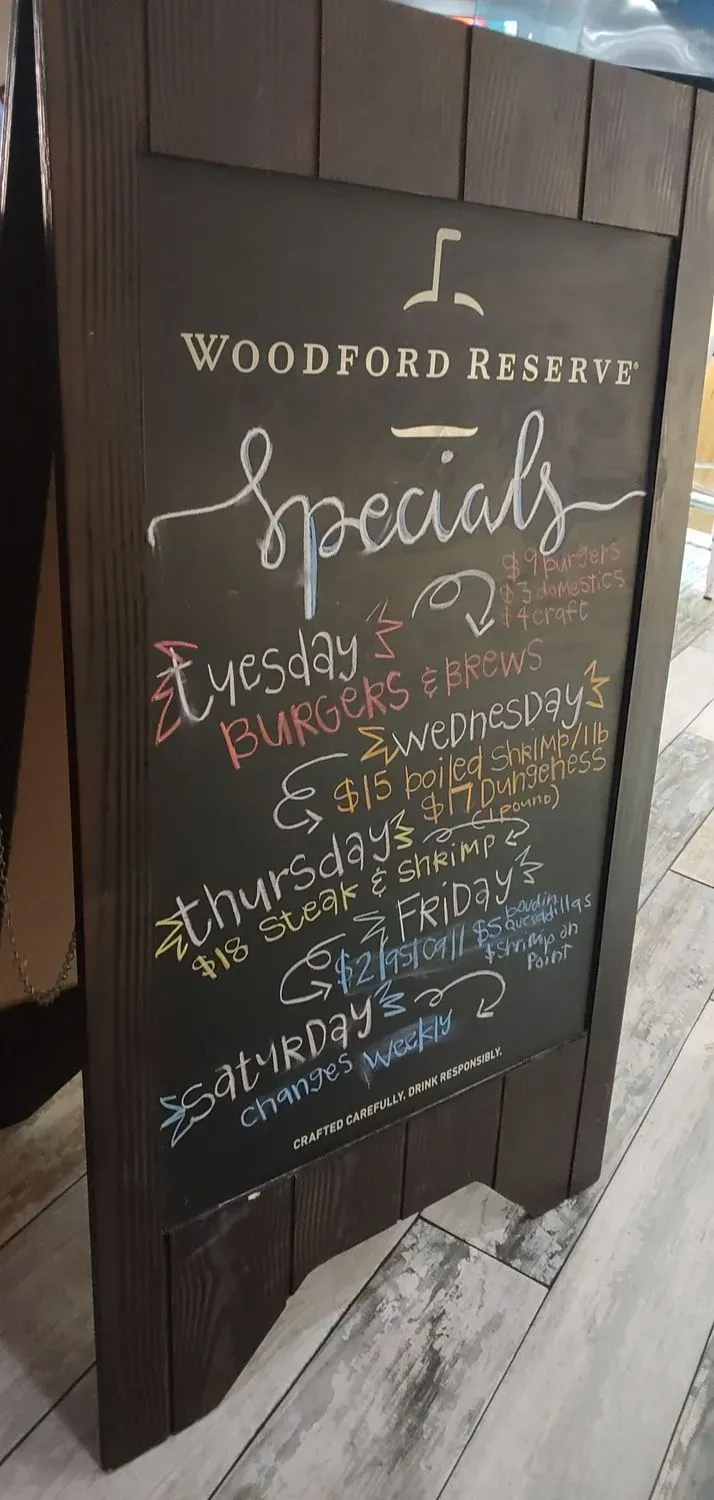 WOODFORD RESERVE
Specials
$9 burgers
$3 domestics
$4 craft
tuesday
BURGERS & BREWS
WEDNESDAY
$15 boiled SHRIMP/1lb
$17 Dungeness
(1 pound)
thursday
$18 Steak & Shrimp
FRIDAY
$2 last call
$5 boudin
quesadillas
$ Shrimp on
Point
SATURDAY
changes weekly
CRAFTED CAREFULLY. DRINK RESPONSIBLY.